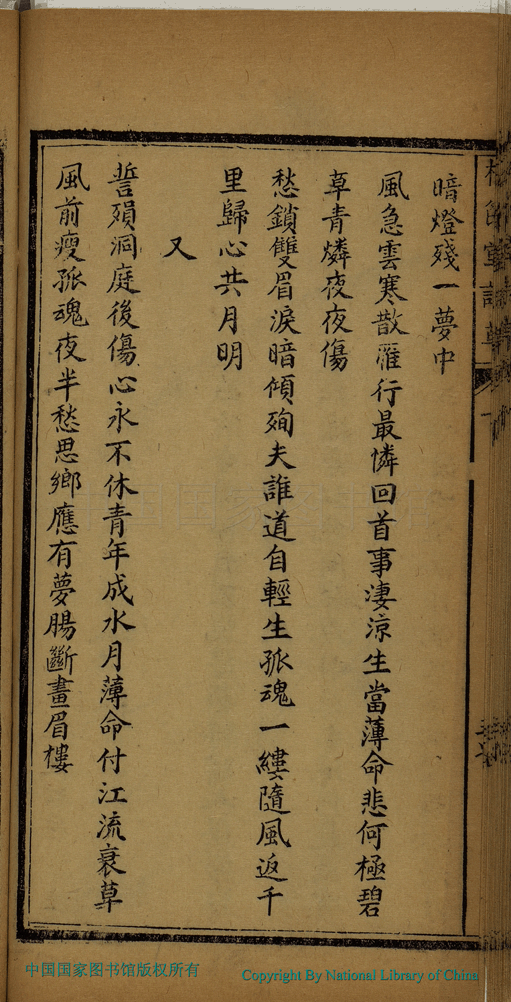 暗燈殘一夢中
風急雲寒散雁行最憐回首事淒涼生當薄命悲何極碧
草青燐夜夜傷
愁鎖雙眉淚暗傾殉夫誰道自輕生孤魂一縷隨風返千
里歸心共月明
又
誓殞洞庭後傷心永不休青年成水月薄命付江流衰草
風前瘦孤魂夜半愁思鄉應有夢腸斷畫眉樓
中国国家图书馆
中国国家图书馆版权所有
Copyright By National Library of China